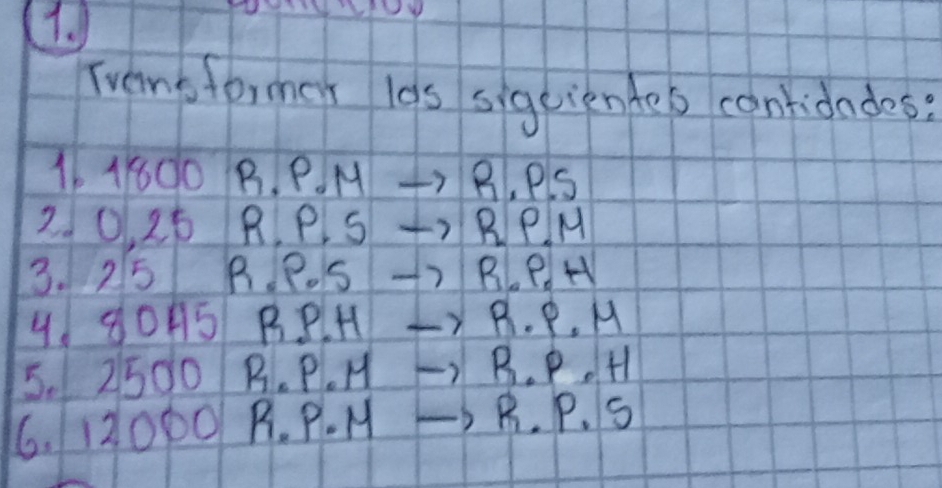 1.
Transformar las siguientes cantidades:
1. 1800 R.P.M → R.P.S
2. 0,25 R.P.S → R.P.M
3. 25 R.P.S → R.P.H
4. 8045 R.P.H → R.P.M
5. 2500 R.P.M → R.P.H
6. 12000 R.P.M → R.P.S